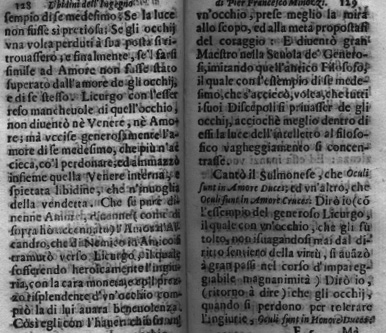 128 Libidini dell'Ingegno
sempio di se medesimo; Se la luce
non fusse sì pretiosa; Se gli occhij
vna volta perduti à sua posta si ri-
trouassero; e finalmente, se'l farsi
simile ad Amore non fusse stato
superato dall'amare de gli occhij,
e di se stesso. Licurgo con l'esser
reso mancheuole di quell'occhio,
non diuentò nè Venere, nè Amo-
re; mà vccise generosamente l'a-
more di se medesimo, che più n'ac-
cieca, co'l perdonare; ed ammazzò
insieme quella Venere interna, e
spietata libidine, che n'inuoglia
della vendetta. Che se pure di-
uenne
candro, che di Nemico in Amico
tramutò verso Licurgo, il quale
sofferendo heroicamente l'ingiu-
ria, con la cara moneta
zo risplendente d'vn'occhio com-
prò la di lui anara beneuolenza.
Così egli con l'hauer
di Pier Francesco Minozzi. 129
vn'occhio, prese meglio la mira
allo scopo, ed alla meta propostasi
del coraggio: E diuentò gran
Maestro nella Scuola de' Genero-
si, imitando quell'antico Filosofo,
il quale con l'esempio di se mede-
simo, che s'acciecò, volea, che tutti
i suoi Discepoli si priuasser de gli
occhij, acciochè meglio dentro di
essi la luce dell'intelletto al filoso-
fico vagheggiamento si concen-
trasse.
Cantò il Sulmonese, che Oculi
sunt in Amore Duces; ed vn'altro, che
Oculi sunt in Amore Cruces: Dirò io (cõ
l'essempio del generoso Licurgo,
il quale con vn'occhio, che gli fù
tolto, non isuagandosi mai dal di-
ritto sentiero della virtù, si auãzò
à gran passi nel corso d'impareg-
giabile magnanimità) Dirò io,
(ritorno à dire) che gli occhij,
quando si perdono per tolerare
l'ingiurie, Oculi sunt in Honore Duces
Mà